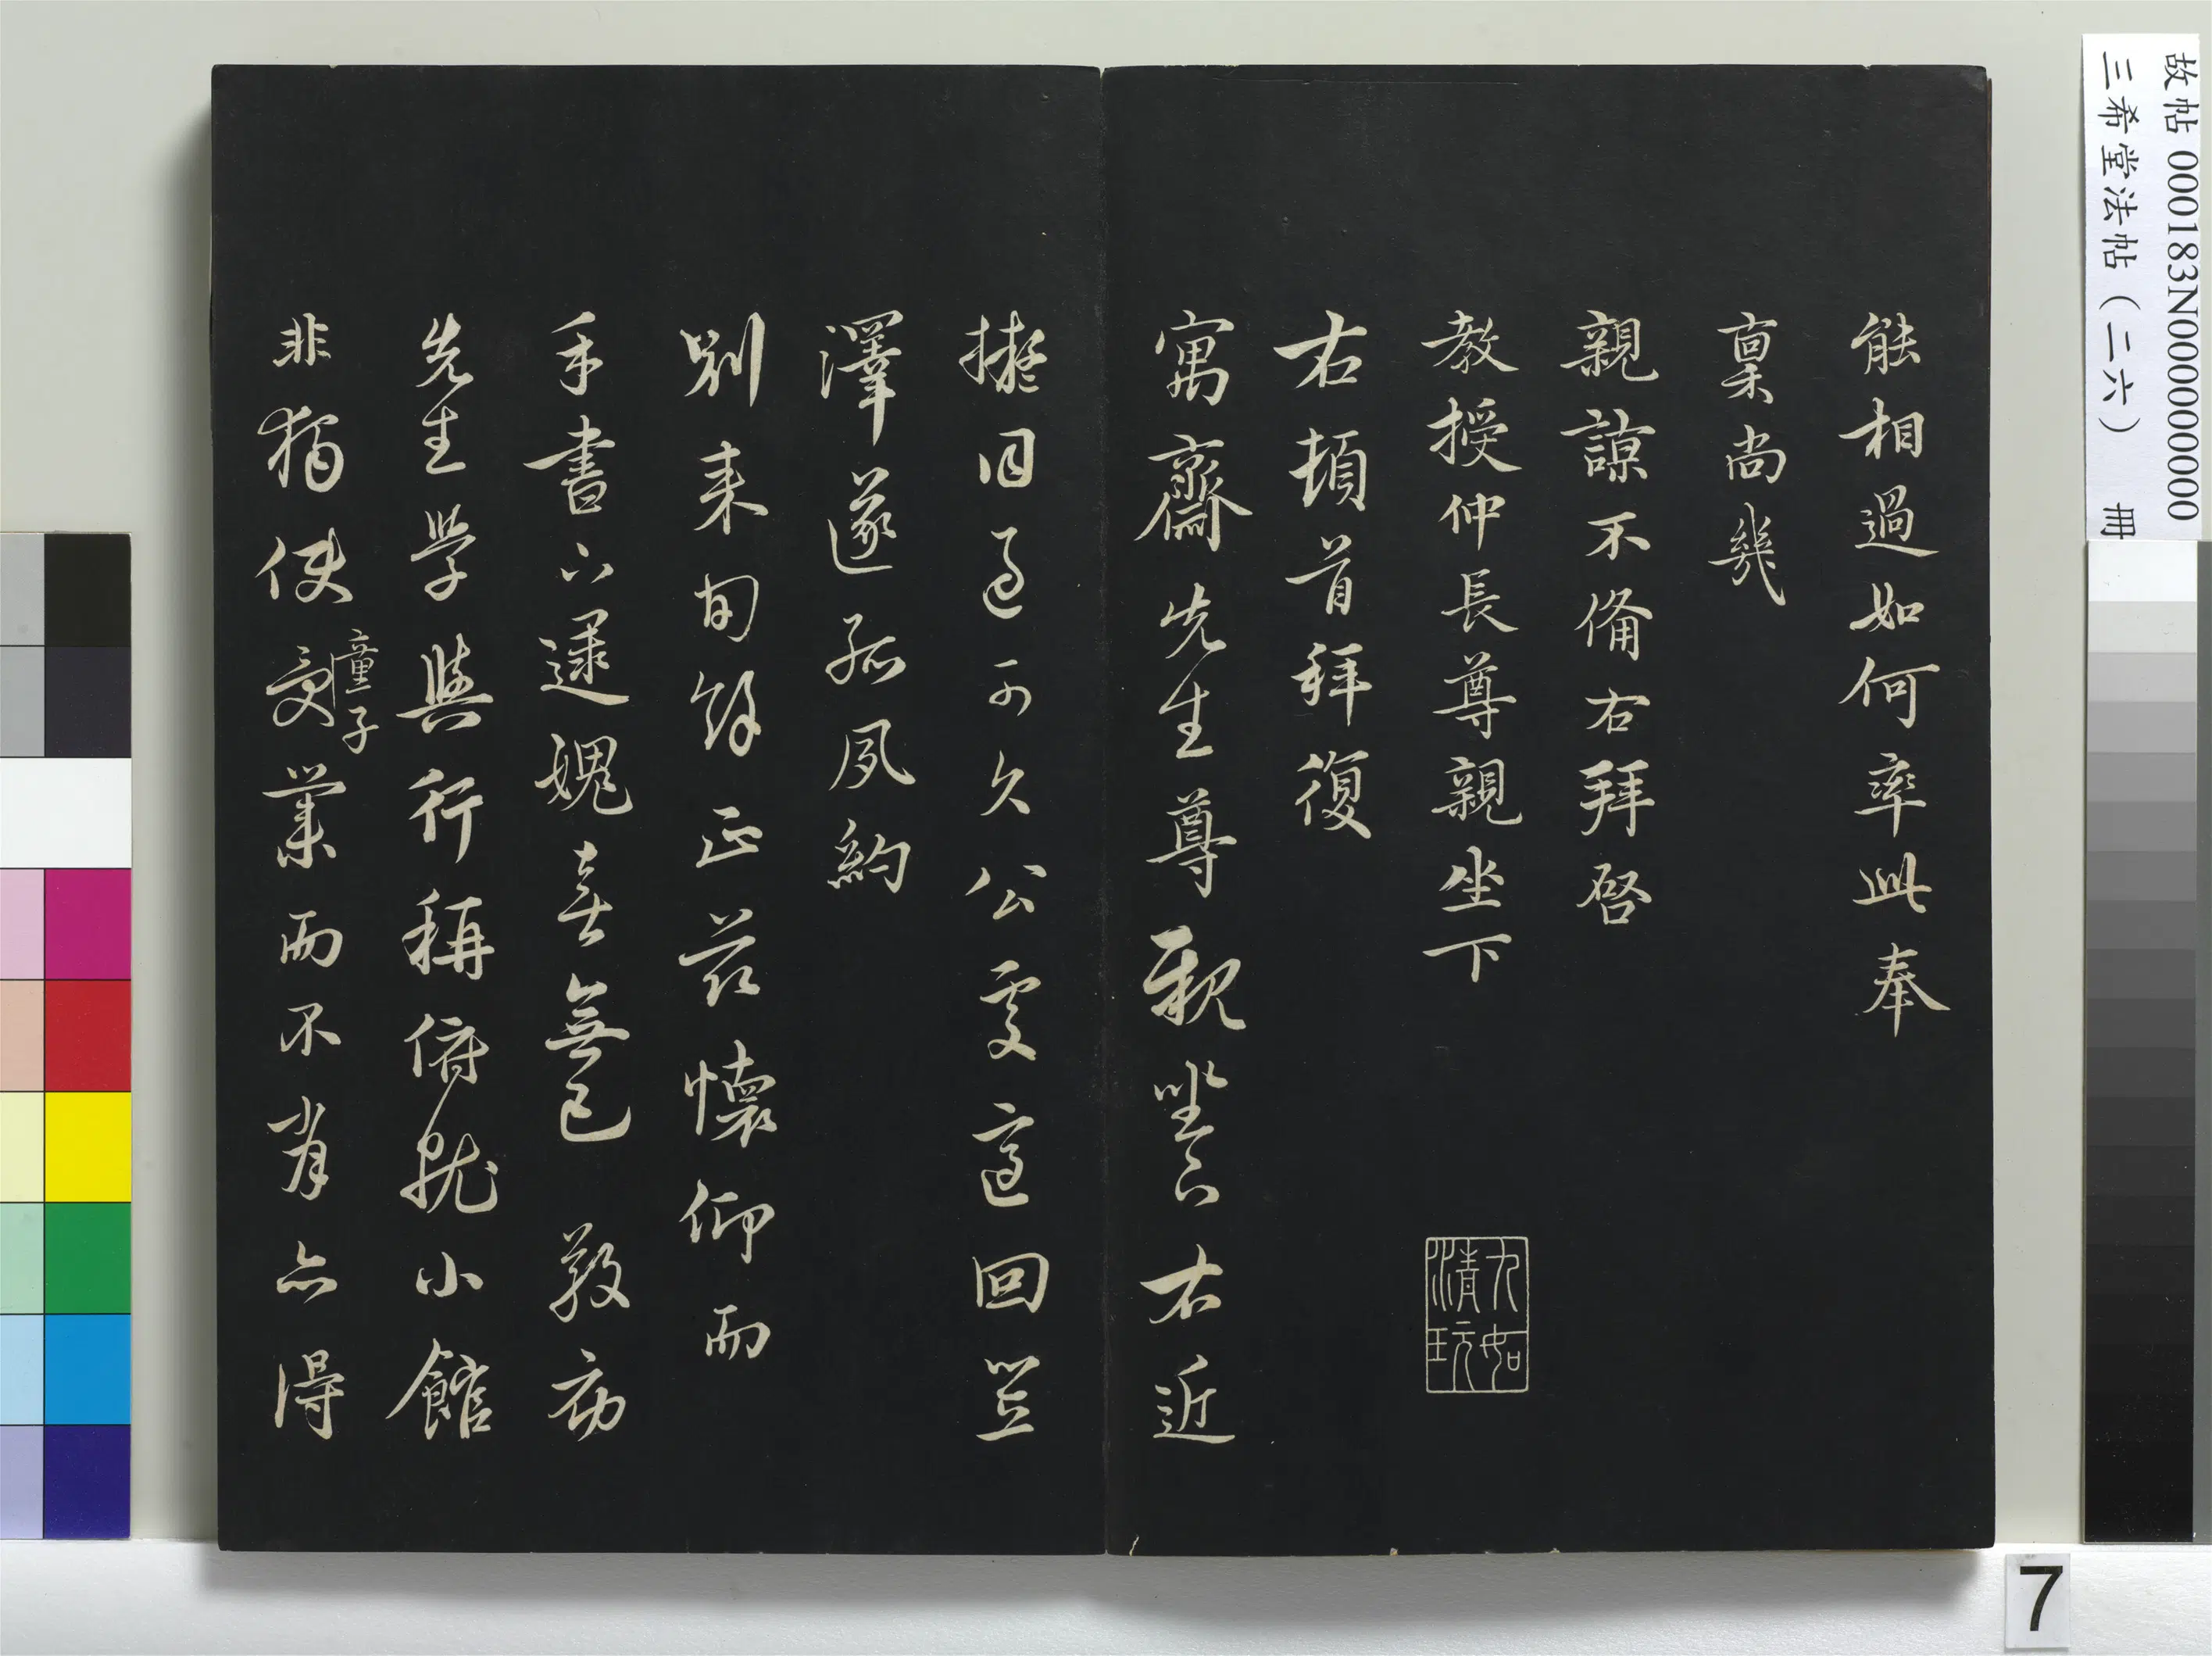 故帖 000183N000000000
三希堂法帖（二六） 冊
能相過如何率此奉
稟尚幾
親諒不備右拜啓
教授仲長尊親坐下
九如清玩
右頓首拜復
寓齋先生尊親坐下右近
擬同過可久公處適回豈
澤遂孤夙約
別來旬餘正茲懷仰而
手書下逮媿喜無已 敬
先生學與行稱俯就小館
非獨使童子受業而不肖亦得
7